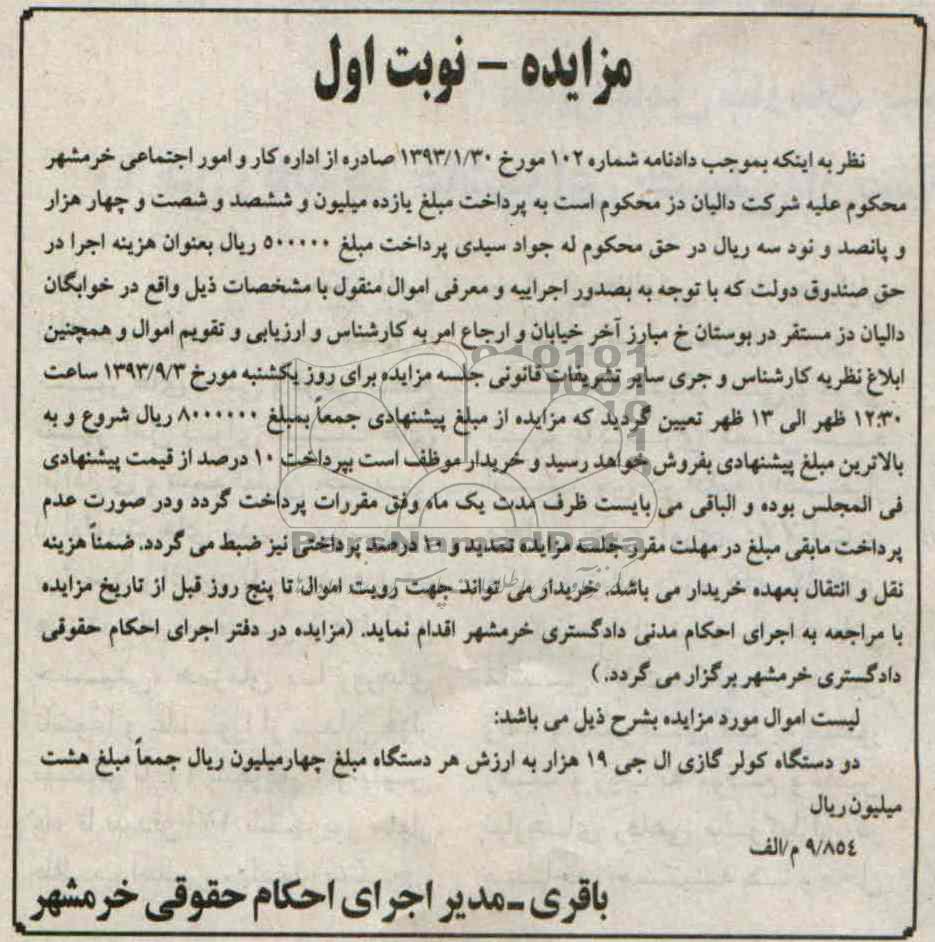 مزایده – نوبت اول
نظر به اینکه بموجب دادنامه شماره ۱۰۲ مورخ ۱۳۹۳/۱/۳۰ صادره از اداره کار و امور اجتماعی خرمشهر
محکوم علیه شرکت دالیان دز محکوم است به پرداخت مبلغ یازده میلیون و ششصد و شصت و چهار هزار
و پانصد و نود سه ریال در حق محکوم له جواد سیدی پرداخت مبلغ ۵۰۰۰۰۰ ریال بعنوان هزینه اجرا در
حق صندوق دولت که با توجه به بصدور اجراییه و معرفی اموال منقول با مشخصات ذیل واقع در خوابگان
دالیان دز مستقر در بوستان خ مبارز آخر خیابان و ارجاع امر به کارشناس و ارزیابی و تقویم اموال و همچنین
ابلاغ نظریه کارشناس و جری سایر تشریفات قانونی جلسه مزایده برای روز یکشنبه مورخ ۱۳۹۳/۹/۳ ساعت
۱۲:۳۰ ظهر الی ۱۳ ظهر تعیین گردید که مزایده از مبلغ پیشنهادی جمعاً بمبلغ ۸۰۰۰۰۰۰ ریال شروع و به
بالاترین مبلغ پیشنهادی بفروش خواهد رسید و خریدار موظف است بپرداخت ۱۰ درصد از قیمت پیشنهادی
فی المجلس بوده و الباقی می بایست ظرف مدت یک ماه وفق مقررات پرداخت گردد ودر صورت عدم
پرداخت مابقی مبلغ در مهلت مقرر جلسه مزایده تمدید و ۱۰ درصد پرداختی نیز ضبط می گردد. ضمناً هزینه
نقل و انتقال بعهده خریدار می باشد. خریدار می تواند جهت رویت اموال تا پنج روز قبل از تاریخ مزایده
با مراجعه به اجرای احکام مدنی دادگستری خرمشهر اقدام نماید. (مزایده در دفتر اجرای احکام حقوقی
دادگستری خرمشهر برگزار می گردد.)
لیست اموال مورد مزایده بشرح ذیل می باشد:
دو دستگاه کولر گازی ال جی ۱۹ هزار به ارزش هر دستگاه مبلغ چهارمیلیون ریال جمعاً مبلغ هشت
میلیون ریال
۹/۸۵۴ م/الف
باقری ـ مدیر اجرای احکام حقوقی خرمشهر
ParsNamadData